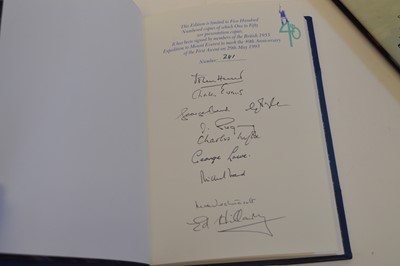 This Edition is limited to Five Hundred
Numbered copies of which One to Fifty
are presentation copies.
It has been signed by members of the British 1953
Expedition to Mount Everest to mark the 40th Anniversary
of the First Ascent on 29th May, 1993
Number
John Hunt
Charles Evans
George Band
Charles Wylie
George Lowe
Michael Ward
Ed Hillary
40